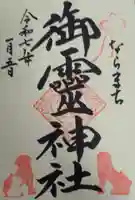 ならまち
御靈神社
令和七年
一月五日